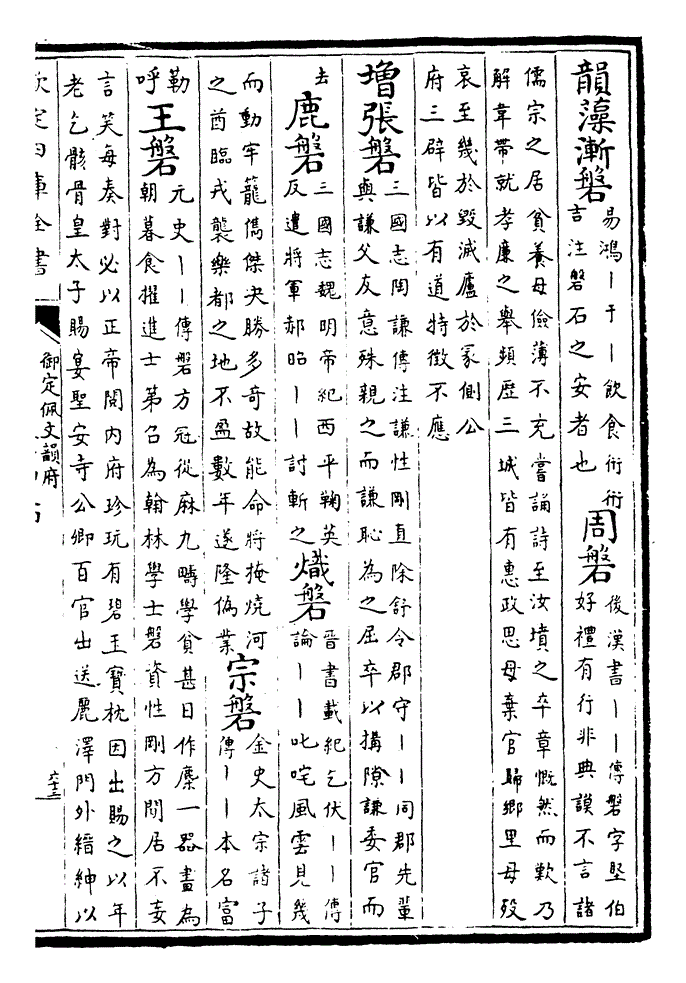 韻藻漸磐 易鴻丨于丨飲食衎衎
吉注磐石之安者也 周磐 後漢書丨丨傳磐字堅伯
好禮有行非典謨不言諸
儒宗之居貧養母儉薄不充嘗誦詩至汝墳之卒章慨然而歎乃
解韋帶就孝廉之舉頻歴三城皆有惠政思母棄官歸鄉里母歿
哀至幾於毀滅廬於冢側公
府三辟皆以有道特徵不應
增張磐 三國志陶謙傳注謙性剛直除舒令郡守丨丨同郡先輩
與謙父友意殊親之而謙恥為之屈卒以搆隙謙委官而
去 鹿磐 三國志魏明帝紀西平鞠英
反遣將軍郝昭丨丨討斬之 熾磐 晉書載紀乞伏丨丨傳
論丨丨叱咤風雲見幾
而動牢籠儁傑决勝多奇故能命將掩燒河
之酋臨戎襲樂都之地不盈數年遂隆偽業 宗磐 金史太宗諸子
傳丨丨本名富
勒
呼 王磐 元史丨丨傳磐方冠從麻九疇學貧甚日作糜一器畫為
朝暮食擢進士第召為翰林學士磐資性剛方閒居不妄
言笑每奏對必以正帝閲内府珍玩有碧玉寶枕因出賜之以年
老乞骸骨皇太子賜宴聖安寺公卿百官出送麗澤門外縉紳以
欽定四庫全書
御定佩文韻府
六十三